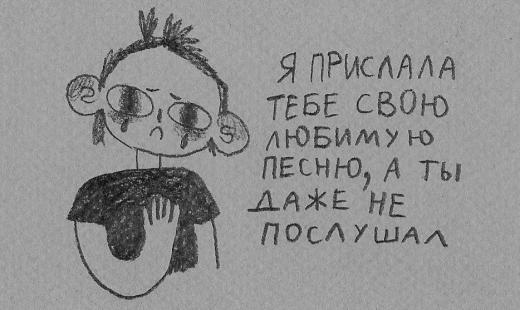 Я ПРИСЛАЛА
ТЕБЕ СВОЮ
ЛЮБИМУЮ
ПЕСНЮ, А ТЫ
ДАЖЕ НЕ
ПОСЛУШАЛ